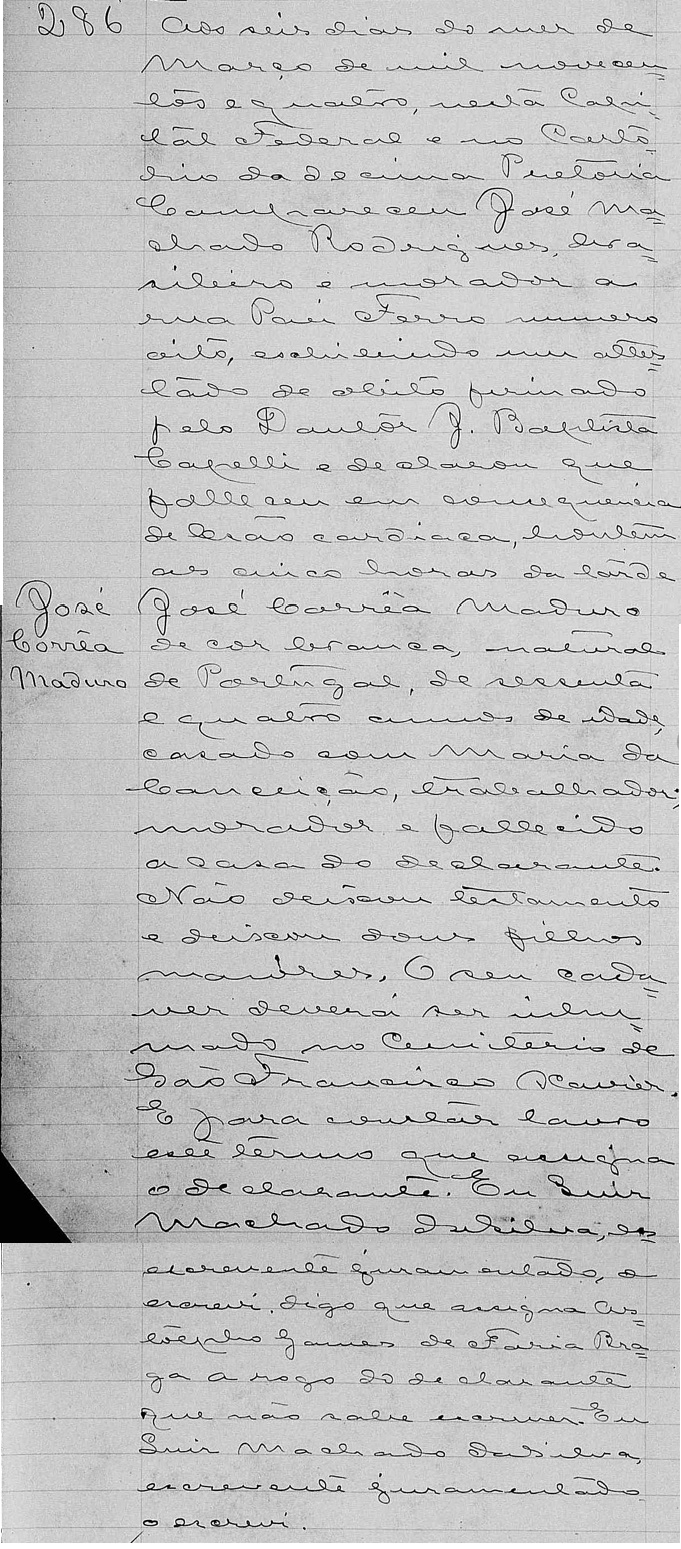 286 Aos seis dias do mez de
Março de mil novecen=
tos e quatro, nesta Capi=
tal Federal e no Cartó=
rio da decima Pretoria
Compareceu José Ma=
chado Rodrigues, bra=
sileiro e morador a
rua Páu Ferro numero
oito, exhibindo um attes=
tado de obito firmado
pelo Doutôr J. Baptista
Capelli e declarou que
falleceu em consequencia
de lesão cardiaca, hontem
as cinco horas da tarde
José Corrêa Maduro
José Corrêa Maduro
de cor branca, natural
de Portugal, de sessenta
e quatro annos de idade,
casado com Maria da
Conceição, trabalhador,
morador e fallecido
a casa do declarante.
Não deixou testamento
e deixou dous filhos
maiores. O seu cada=
ver deverá ser inhu=
mado no Cemiterio de
São Francisco Xavier.
E para constar lavro
este têrmo que assigna
o declarante. Eu Luiz
Machado da Silva, es=
escrevente juramentado, o
escrevi. digo que assigna
Gomes de Faria Bra=
ga a rogo do declarante
que não sabe escrever. Eu
Luiz Machado da Silva,
escrevente juramentado
o escrevi.